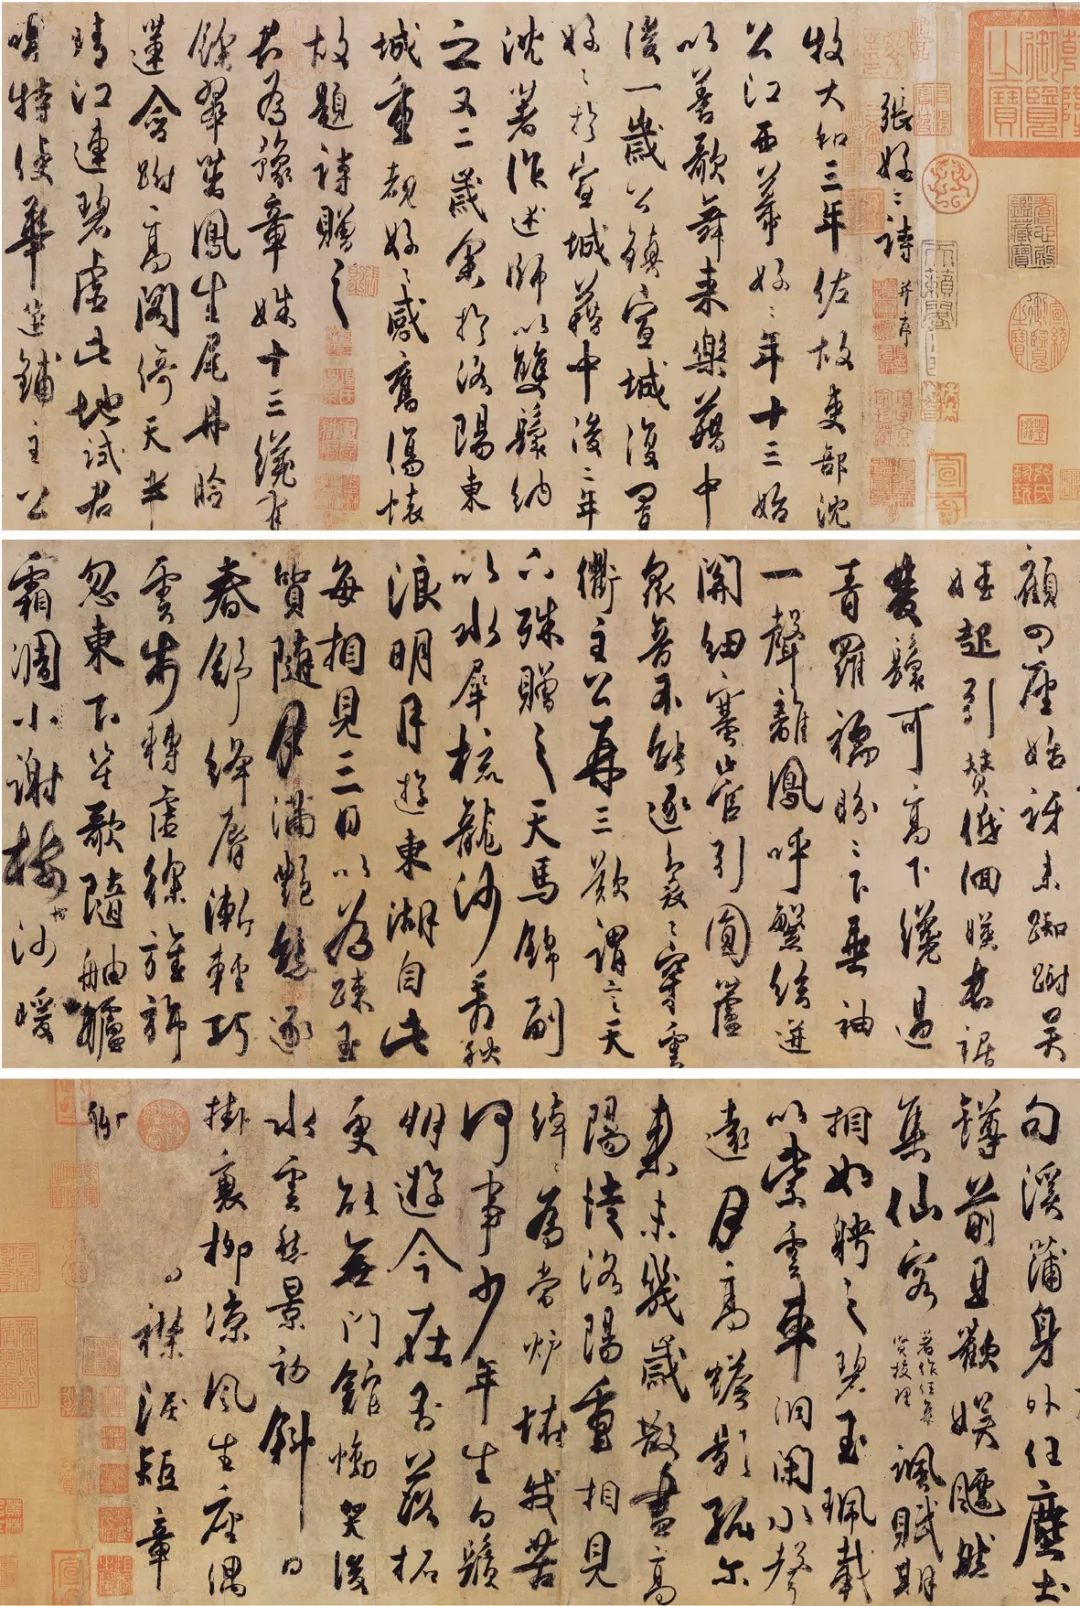 張好〻詩 并序
牧大和三年佐故吏部沈
公江西幕好〻年十三始
以善歌舞来樂籍中
後一歲公鎮宣城復置
好〻於宣城籍中後二年
沈著作述師以雙鬟納
之又二歲余於洛陽東
城重覩好〻感舊傷懷
故題詩贈之
君為豫章姝十三纔有
餘翠茁鳳生尾丹臉
蓮含跗高閣倚天半
晴江連碧虛此地試君
唱特使華筵鋪主公
顧四座始訝来踟躕吳
娃起引贊低佪暎長裾
雙鬟可高下纔過
青羅襦盼〻下垂袖
一聲離鳳呼繁絃迸
關紐塞管引圓蘆
衆音不能逐裊〻穿雲
衢主公再三歎謂言天
下殊贈之天馬錦副
以水犀梳龍沙看秋
浪明月遊東湖自此
每相見三日以為疎玉
質隨月滿豔態逐
春舒絳脣漸輕巧
雲步轉虛徐旌旆
忽東下笙歌隨舳艫
霜凋小謝樓樹沙暖
句溪蒲身外任塵土
罇前且歡娛飄然
集仙客著作任集賢校理諷賦期
相如聘之碧玉珮載
以紫雲車洞閉水聲
遠月高蟾影孤尔
来未幾歲散盡高
陽徒洛陽重相見
綽〻為當爐怪我苦
何事少年生白鬚
朋遊今在否落拓
更能無門館慟哭後
水雲愁景初斜日
掛衰柳涼風生座隅
襟淚短章
聊